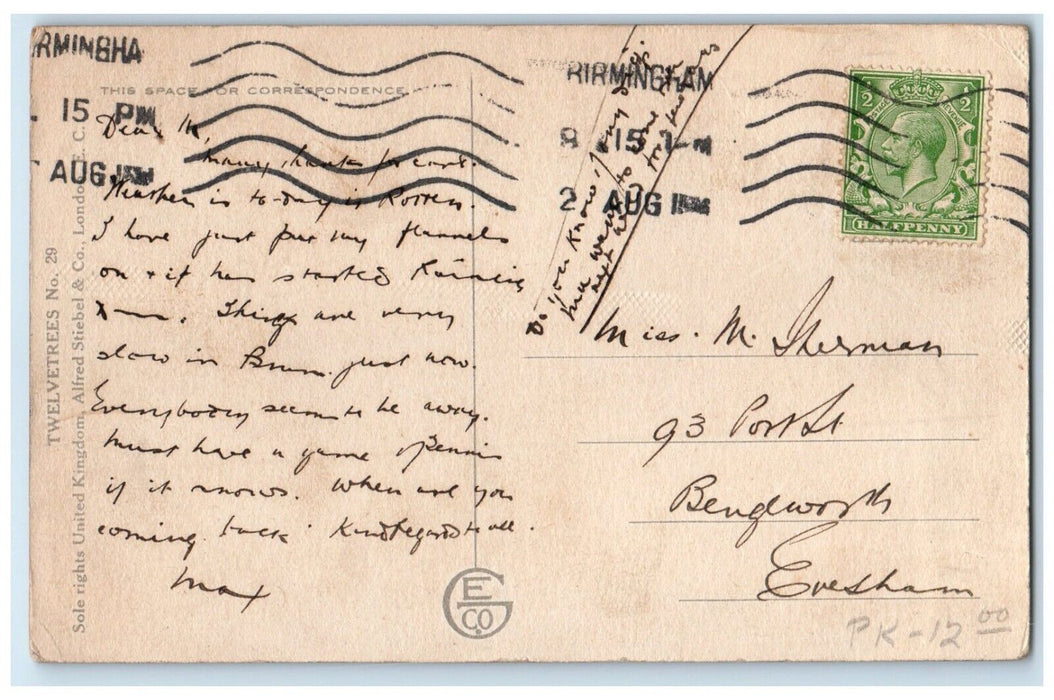 BIRMINGHAM
8 15 PM
2 AUG
RMINGHA
15 PM
AUG
THIS SPACE FOR CORRESPONDENCE
TWELVETREES No. 29
Sole rights United Kingdom, Alfred Stiebel & Co., London, E. C.
Dear M,
many thanks for card.
Weather is to-day is Rotten.
I have just put my flannels
on + it has started Raining
X—. Things are very
slow in Brum. just now.
Everybody seems to be away.
Must have a game of Tennis
if it snows. When are you
coming back Kind Regards to all.
Max
Do you know of any digs
ma wants to
next
Miss. M. Sherman
93 Port St
Bengeworth
Evesham
2 2
HALFPENNY
E G CO.
PK-12 00